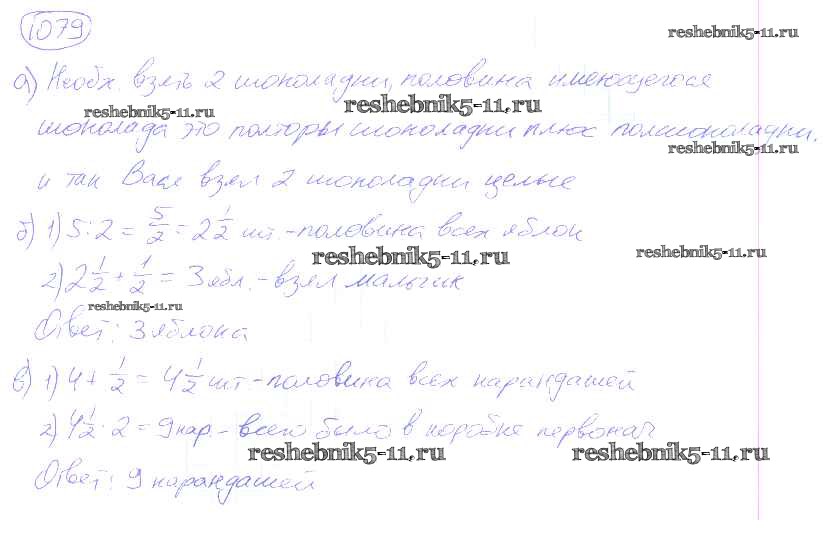 1079
reshebnik5-11.ru
а) Необх. взять 2 шоколадки, половина имеющегося
reshebnik5-11.ru reshebnik5-11.ru
шоколада это полторы шоколадки плюс полшоколадки.
reshebnik5-11.ru
и так Вася взял 2 шоколадки целые
б) 1) 5:2 = 5/2 = 2 1/2 шт. - половина всех яблок
reshebnik5-11.ru reshebnik5-11.ru
2) 2 1/2 + 1/2 = 3 ябл. - взял мальчик
reshebnik5-11.ru
Ответ: 3 яблока
в) 1) 4 + 1/2 = 4 1/2 шт - половина всех карандашей
2) 4 1/2 · 2 = 9 кар. - всего было в коробке первонач
reshebnik5-11.ru reshebnik5-11.ru
Ответ: 9 карандашей